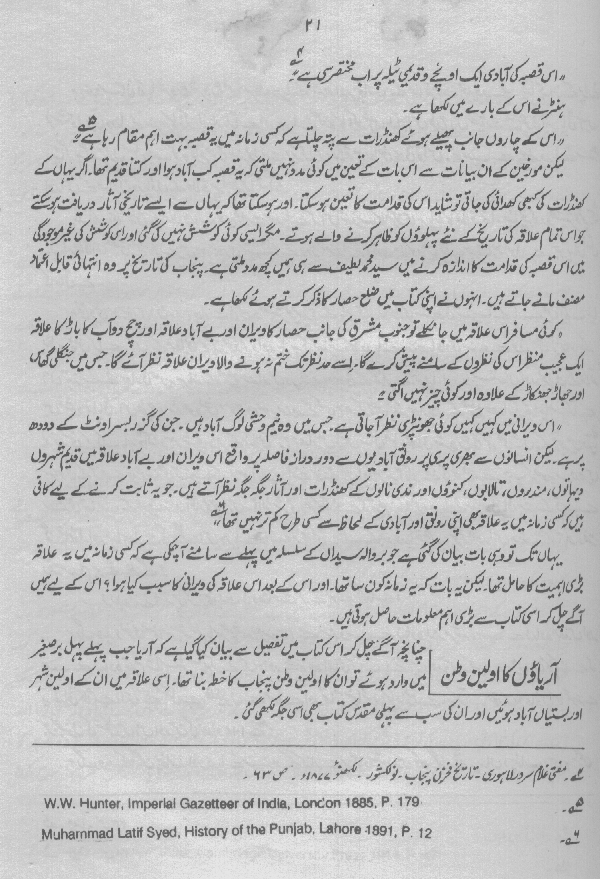 ۲۱
"اس قصبہ کی آبادی ایک اونچے و قدیمی ٹیلہ پر اب مختصر سی ہے۔"۴
ہنٹر نے اس کے بارے میں لکھا ہے۔
"اس کے چاروں جانب پھیلے ہوئے کھنڈرات سے پتہ چلتا ہے کہ کسی زمانہ میں یہ قصبہ بہت اہم مقام رہا ہے"۵
لیکن مورخین کے ان بیانات سے اس بات کے تعین میں کوئی مدد نہیں ملتی کہ یہ قصبہ کب آباد ہوا اور کتنا قدیم تھا۔ اگر یہاں کے
کھنڈرات کی کبھی کھدائی کی جاتی تو شاید اس کی قدامت کا تعین ہو سکتا۔ اور ہو سکتا تھا کہ یہاں سے ایسے تاریخی آثار دریافت ہو سکتے
جو اس تمام علاقہ کی تاریخ کے نئے پہلوؤں کو ظاہر کرنے والے ہوتے۔ مگر ایسی کوئی کوشش نہیں کی گئی اور اس کوشش کی غیر موجودگی
میں اس قصبہ کی قدامت کا اندازہ کرنے میں سید محمد لطیف سے ہی ہمیں کچھ مدد ملتی ہے۔ پنجاب کی تاریخ پر وہ انتہائی قابل اعتماد
مصنف مانے جاتے ہیں۔ انہوں نے اپنی کتاب میں ضلع حصار کا ذکر کرتے ہوئے لکھا ہے۔
"کوئی مسافر اس علاقہ میں جا نکلے تو جنوب مشرق کی جانب حصار کا ویران اور بے آباد علاقہ اور جج دوآب کا باڑ کا علاقہ
ایک عجیب منظر اس کی نظروں کے سامنے پیش کرے گا۔ اسے حد نظر تک ختم نہ ہونے والا ویران علاقہ نظر آئے گا۔ جس میں جنگلی گھاس
اور جھاڑ جھنکاڑ کے علاوہ اور کوئی چیز نہیں اگتی۔"
"اس ویرانی میں کہیں کہیں کوئی جھونپڑی نظر آ جاتی ہے۔ جس میں وہ نیم وحشی لوگ آباد ہیں۔ جن کی گزر بسر اونٹ کے دودھ
پر ہے۔ لیکن انسانوں سے بھری پری پر رونق آبادیوں سے دور دراز فاصلہ پر واقع اس ویران اور بے آباد علاقہ میں قدیم شہروں
دیہاتوں، مندروں، تالابوں، کنوؤں اور ندی نالوں کے کھنڈرات اور آثار جگہ جگہ نظر آتے ہیں۔ جو یہ ثابت کرنے کے لیے کافی
ہیں کہ کسی زمانہ میں یہ علاقہ بھی اپنی رونق اور آبادی کے لحاظ سے کسی طرح کم تر نہیں تھا"۶
یہاں تک تو وہی بات بیان کی گئی ہے جو بروالہ سیداں کے سلسلہ میں پہلے سے سامنے آ چکی ہے کہ کسی زمانہ میں یہ علاقہ
بڑی اہمیت کا حامل تھا۔ لیکن یہ بات کہ یہ زمانہ کون سا تھا۔ اور اس کے بعد اس علاقہ کی ویرانی کا سبب کیا ہوا؟ اس کے لیے ہمیں
آگے چل کر اسی کتاب سے بڑی اہم معلومات حاصل ہوتی ہیں۔
آریاؤں کا اولین وطن
چنانچہ آگے چل کر اس کتاب میں تفصیل سے بیان کیا گیا ہے کہ آریا جب پہلے پہل برصغیر
میں وارد ہوئے تو ان کا اولین وطن پنجاب کا خطہ بنا تھا۔ اسی علاقہ میں ان کے اولین شہر
اور بستیاں آباد ہوئیں اور ان کی سب سے پہلی مقدس کتاب بھی اسی جگہ لکھی گئی۔
۴۔ مفتی غلام سرور لاہوری۔ تاریخ مخزن پنجاب۔ نولکشور۔ لکھنؤ ۱۸۷۷ء۔ ص ۶۳۔
۵۔ W.W. Hunter, Imperial Gazetteer of India, London 1885, P. 179
۶۔ Muhammad Latif Syed, History of the Punjab, Lahore 1891, P. 12